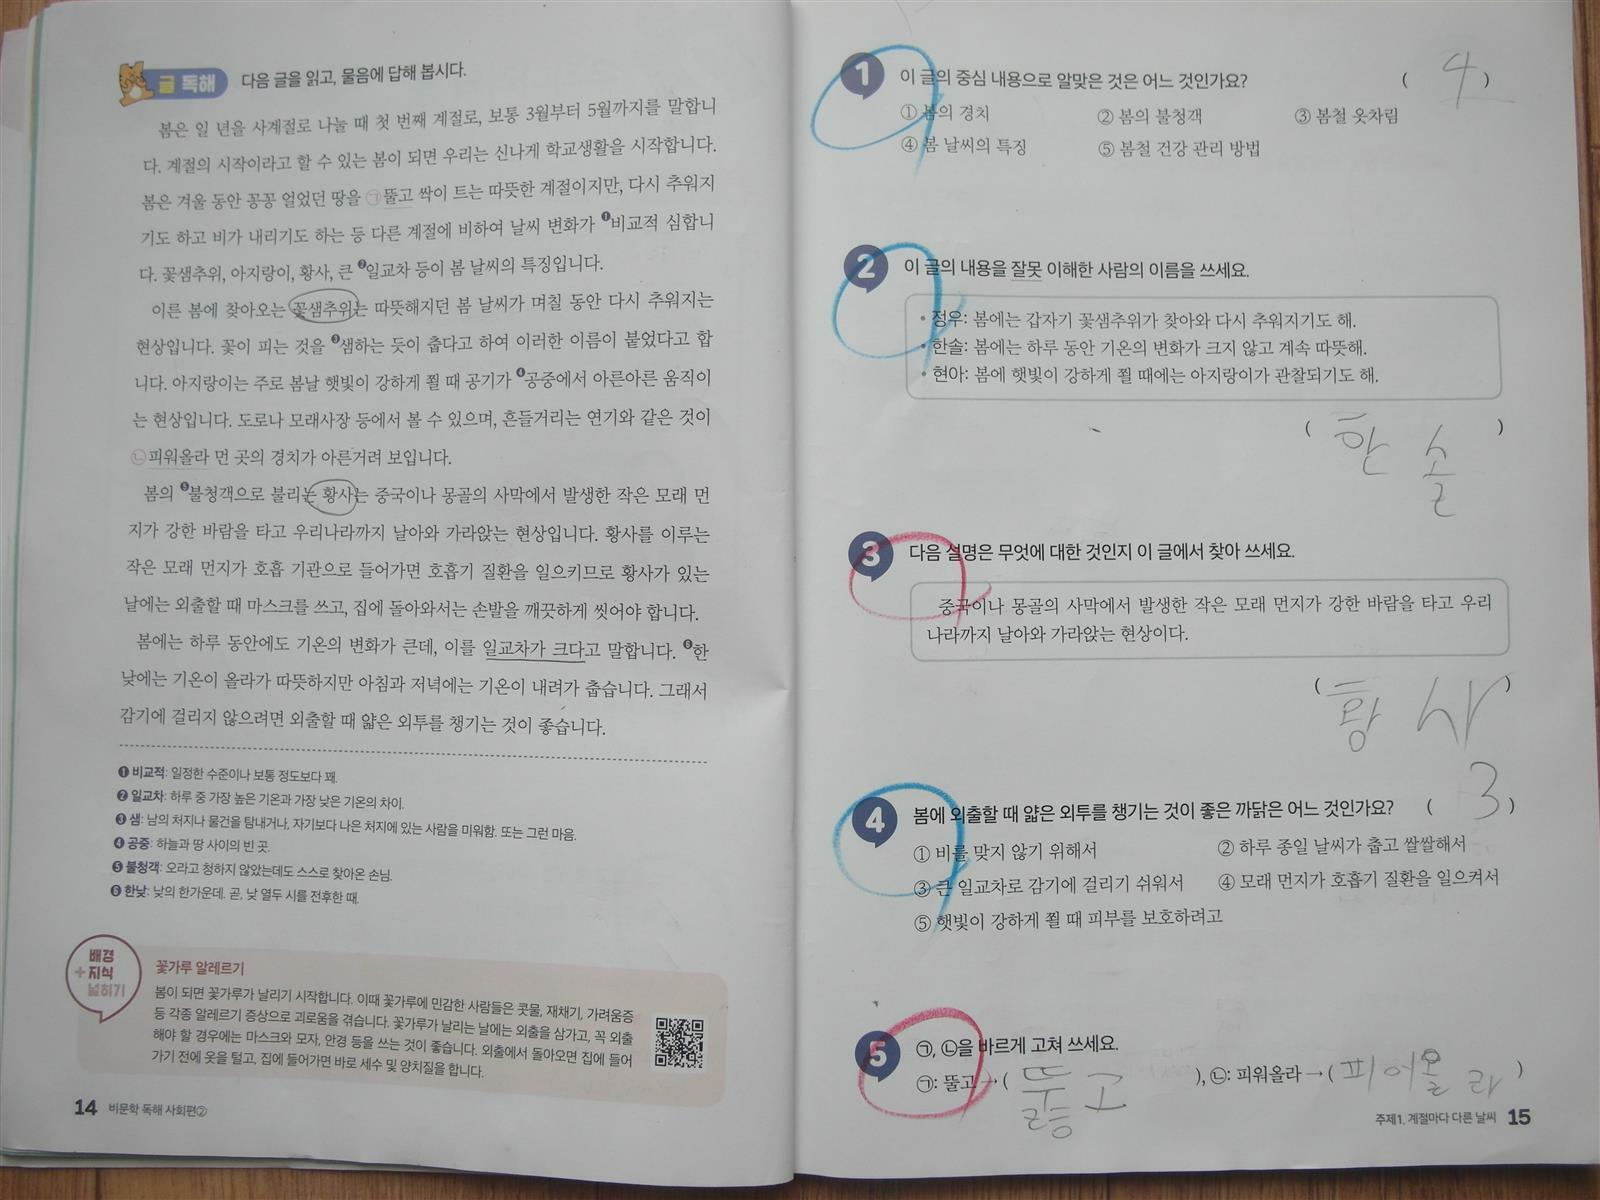 글 독해 다음 글을 읽고, 물음에 답해 봅시다.
봄은 일 년을 사계절로 나눌 때 첫 번째 계절로, 보통 3월부터 5월까지를 말합니
다. 계절의 시작이라고 할 수 있는 봄이 되면 우리는 신나게 학교생활을 시작합니다.
봄은 겨울 동안 꽁꽁 얼었던 땅을 ㉠뚤고 싹이 트는 따뜻한 계절이지만, 다시 추워지
기도 하고 비가 내리기도 하는 등 다른 계절에 비하여 날씨 변화가 ❶비교적 심합니
다. 꽃샘추위, 아지랑이, 황사, 큰 ❷일교차 등이 봄 날씨의 특징입니다.
이른 봄에 찾아오는 꽃샘추위는 따뜻해지던 봄 날씨가 며칠 동안 다시 추워지는
현상입니다. 꽃이 피는 것을 ❸샘하는 듯이 춥다고 하여 이러한 이름이 붙었다고 합
니다. 아지랑이는 주로 봄날 햇빛이 강하게 쬘 때 공기가 ❹공중에서 아른아른 움직이
는 현상입니다. 도로나 모래사장 등에서 볼 수 있으며, 흔들거리는 연기와 같은 것이
㉡피워올라 먼 곳의 경치가 아른거려 보입니다.
봄의 ❺불청객으로 불리는 황사는 중국이나 몽골의 사막에서 발생한 작은 모래 먼
지가 강한 바람을 타고 우리나라까지 날아와 가라앉는 현상입니다. 황사를 이루는
작은 모래 먼지가 호흡 기관으로 들어가면 호흡기 질환을 일으키므로 황사가 있는
날에는 외출할 때 마스크를 쓰고, 집에 돌아와서는 손발을 깨끗하게 씻어야 합니다.
봄에는 하루 동안에도 기온의 변화가 큰데, 이를 일교차가 크다고 말합니다. ❻한
낮에는 기온이 올라가 따뜻하지만 아침과 저녁에는 기온이 내려가 춥습니다. 그래서
감기에 걸리지 않으려면 외출할 때 얇은 외투를 챙기는 것이 좋습니다.
❶ 비교적: 일정한 수준이나 보통 정도보다 꽤.
❷ 일교차: 하루 중 가장 높은 기온과 가장 낮은 기온의 차이.
❸ 샘: 남의 처지나 물건을 탐내거나, 자기보다 나은 처지에 있는 사람을 미워함. 또는 그런 마음.
❹ 공중: 하늘과 땅 사이의 빈 곳.
❺ 불청객: 오라고 청하지 않았는데도 스스로 찾아온 손님.
❻ 한낮: 낮의 한가운데. 곧, 낮 열두 시를 전후한 때.
배경
+지식
넓히기
꽃가루 알레르기
봄이 되면 꽃가루가 날리기 시작합니다. 이때 꽃가루에 민감한 사람들은 콧물, 재채기, 가려움증
등 각종 알레르기 증상으로 괴로움을 겪습니다. 꽃가루가 날리는 날에는 외출을 삼가고, 꼭 외출
해야 할 경우에는 마스크와 모자, 안경 등을 쓰는 것이 좋습니다. 외출에서 돌아오면 집에 들어
가기 전에 옷을 털고, 집에 들어가면 바로 세수 및 양치질을 합니다.
14 비문학 독해 사회편②
1 이 글의 중심 내용으로 알맞은 것은 어느 것인가요? ( 4 )
① 봄의 경치 ② 봄의 불청객 ③ 봄철 옷차림
④ 봄 날씨의 특징 ⑤ 봄철 건강 관리 방법
2 이 글의 내용을 잘못 이해한 사람의 이름을 쓰세요.
• 정우: 봄에는 갑자기 꽃샘추위가 찾아와 다시 추워지기도 해.
• 한솔: 봄에는 하루 동안 기온의 변화가 크지 않고 계속 따뜻해.
• 현아: 봄에 햇빛이 강하게 쬘 때에는 아지랑이가 관찰되기도 해.
( 한솔 )
3 다음 설명은 무엇에 대한 것인지 이 글에서 찾아 쓰세요.
중국이나 몽골의 사막에서 발생한 작은 모래 먼지가 강한 바람을 타고 우리
나라까지 날아와 가라앉는 현상이다.
( 황사 )
4 봄에 외출할 때 얇은 외투를 챙기는 것이 좋은 까닭은 어느 것인가요? ( 3 )
① 비를 맞지 않기 위해서 ② 하루 종일 날씨가 춥고 쌀쌀해서
③ 큰 일교차로 감기에 걸리기 쉬워서 ④ 모래 먼지가 호흡기 질환을 일으켜서
⑤ 햇빛이 강하게 쬘 때 피부를 보호하려고
5 ㉠, ㉡을 바르게 고쳐 쓰세요.
㉠: 뚤고 → ( 뚫고 ), ㉡: 피워올라 → ( 피어올라 )
주제1. 계절마다 다른 날씨 15